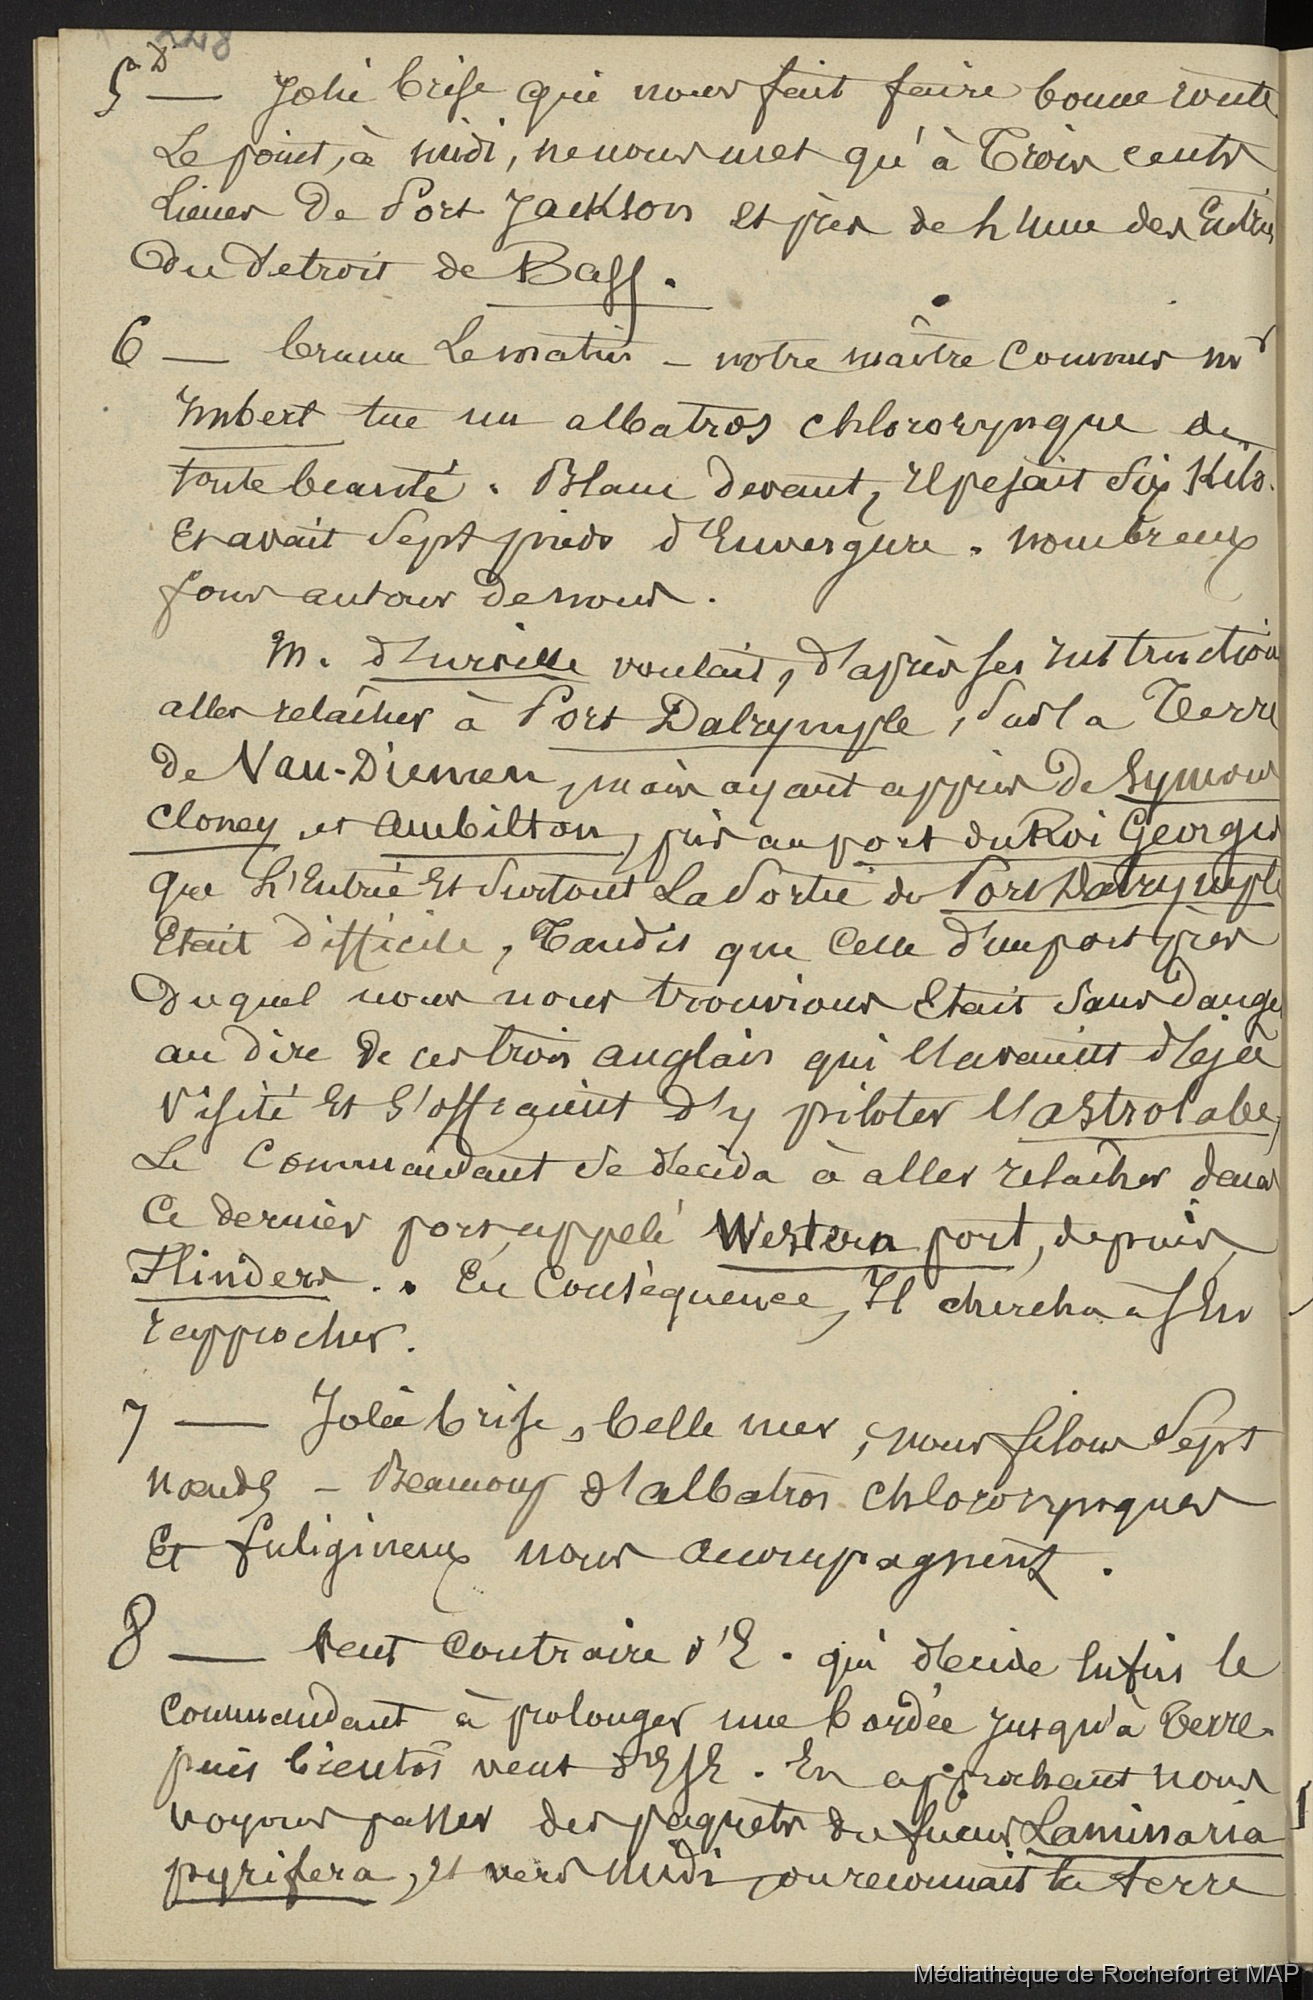 228
5 D — Jolie brise qui nous fait faire bonne route
Le point, à midi, ne nous met qu'à Trois cents
lieues de Port Jackson et près de l'une des Entrées
du detroit de Bass.
6 — brume Le matin - notre maître commis mr
Imbert tue un albatros chlororynque de
toute beauté. Blanc devant, Il pesait Six Kilo.
Et avait Sept pieds d'Envergure. nombreux
fous autour de nous.
M. d'urville voulait, d'après ses instruction
aller relâcher à Port Dalrymple, Sur la Terre
de Van-Diemen, mais ayant appris de Symons
Cloney et Ambilton, pris au port du Roi Georges
que L'Entrée Et Surtout La Sortie de Port Dalrymple
Etait difficile, Tandis que Celle d'un port près
duquel nous nous trouvions Etait Sans dange
au dire de ces trois anglais qui l'avaient déjà
visité Et s'offraient d'y piloter l'astrolabe,
Le Commandant se décida à aller relacher dans
Ce dernier port, appelé Western port, depuis
Flinders.. En Conséquence, Il chercha à s'En
rapprocher.
7 — Jolie brise, belle mer, nous filons Sept
nœuds - Beaucoup d'albatros chlororynques
Et fuligineux nous accompagnent.
8 — Vent Contraire d'E. qui décide Enfin le
Commandant à prolonger une bordée Jusqu'à terre.
puis bientôt vent d'ESE. En approchant nous
voyons passer des paquets du fucus Laminaria
pyrifera, et vers midi, on reconnait la terre
Médiathèque de Rochefort et MAP